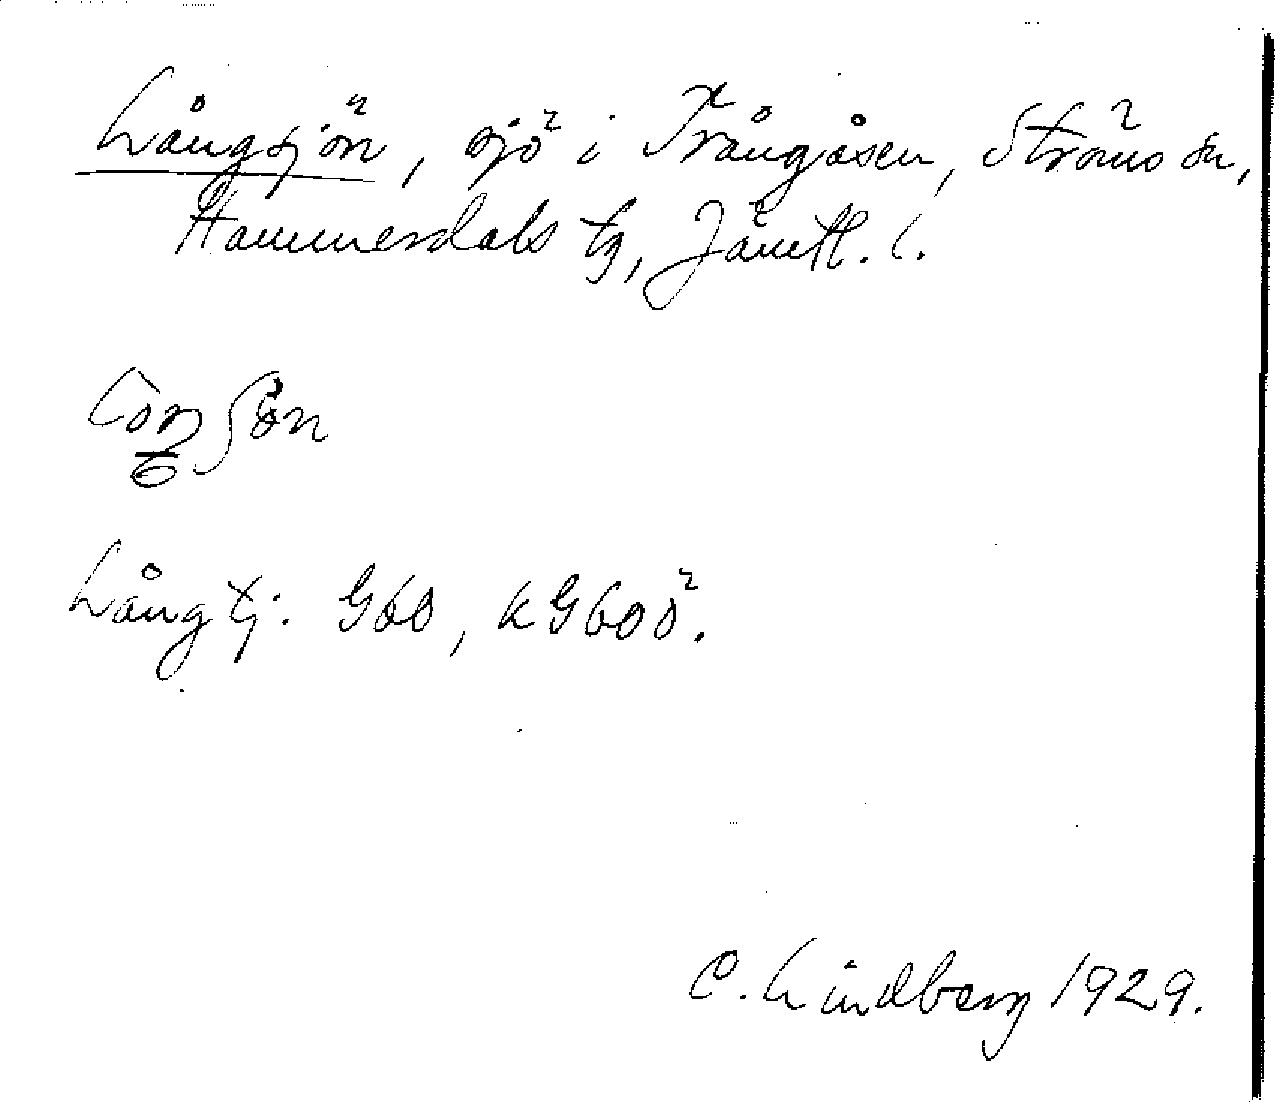 Långsjön, sjö i Trångåsen, Ströms sn,
Hammerdals tg, Jämtl. l.
Långtj: G60, kG600.
C. Lindberg 1929.